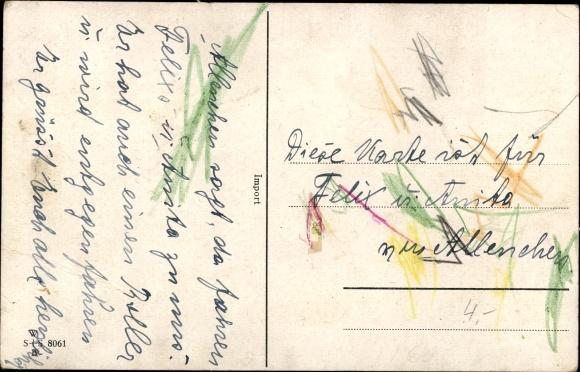 Allenchen sagt, da fahren
Felix u. Anita zu uns.
Er hat auch einen Roller
u. wird entgegen fahren
Er grüsst Euch alle herzl.
Import
S+S 8061
Diese Karte ist für
Felix u. Anita
von Allenchen
4.-